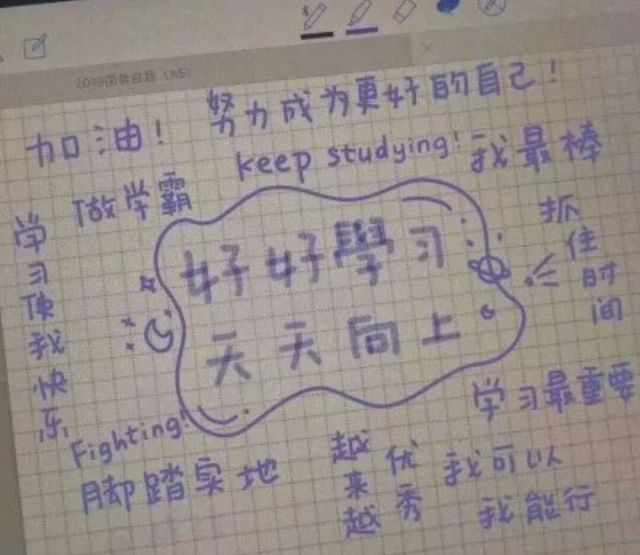 加油！
努力成为更好的自己！
keep studying!
我最棒
做学霸
学习使我快乐
好好學习
天天向上
抓住时间
Fighting!
脚踏实地
越来越优秀
学习最重要
我可以
我能行